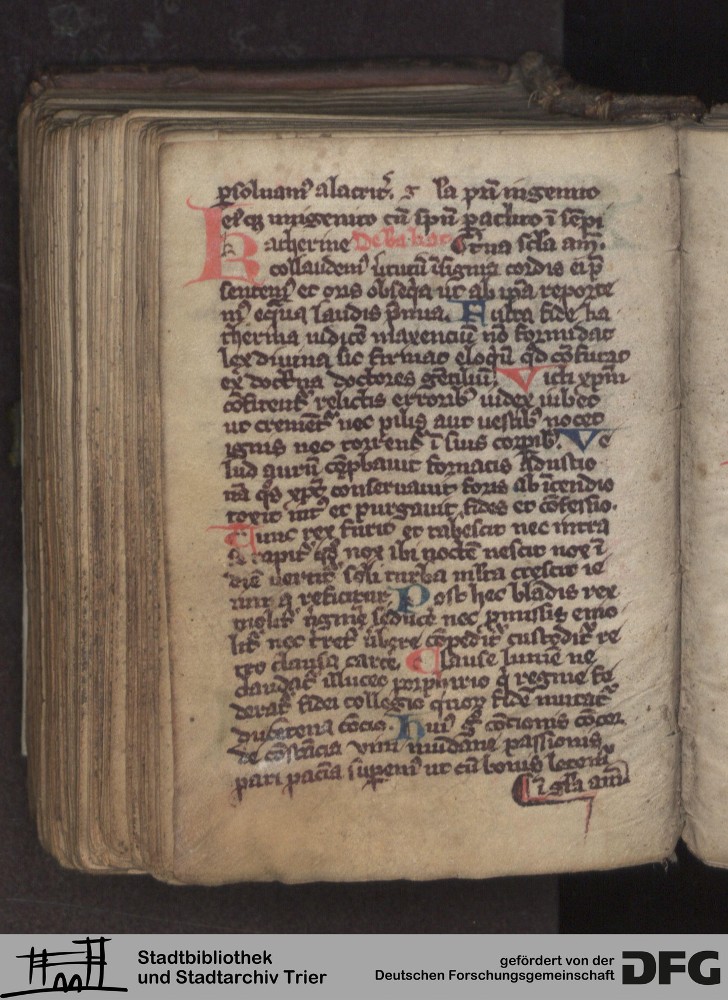 psoluam᷒ alacrit᷒. g la pri ingenito
eiꝰqꝫ unigenito cu spu paclito i sepi
atherine De ba. terna scła am.
collaudem᷒ uirtutu isignia cordis ei p̄
sentem᷒ et oris obseqa ut ab ipa reporte
m᷒ equa laudis pmia. Fulta fide ka
therina iudice maxenciu no formidat
lex diuina sic firmat eloqu qd cofutat
ex doctna doctores gētiliu. Victi xpm
cofitent᷒ relictis erroribꝰ iudex iubet
ut crement᷒ nec pilis aut uestibꝰ nocet
ignis nec torrent᷒ i suis corpibꝰ. Ve
lud auru cōpbauit fornacis adustio
ita qs xpc conseruauit foris ab icendio
torrit int᷒ et purgauit fides et cōfessio.
Tunc rex furit et tabescit nec intra
rapit nox ibi nocte nescit nox i
die uertit᷒ soli turba nista crescit ie
iuit q reficitur. Post hec blādis rex
molit᷒ igine seduce nec pmissis emo
lit᷒ nec tret᷒ ūbere cōpedit᷒ custodit᷒ re
tro clausa carce. Clause lumē ne
claudat᷒ illucet porphirio q regine fe
derat᷒ fidei collegio quoꝝ fidē imitat᷒
ducetena cōcio. Huiꝰ g cōcionis cōcer
te cōstācia uim mūdane passionis
pari pacia supem᷒ ut cu bonis letem᷒
i gła am
Stadtbibliothek
und Stadtarchiv Trier
gefördert von der
Deutschen Forschungsgemeinschaft
DFG